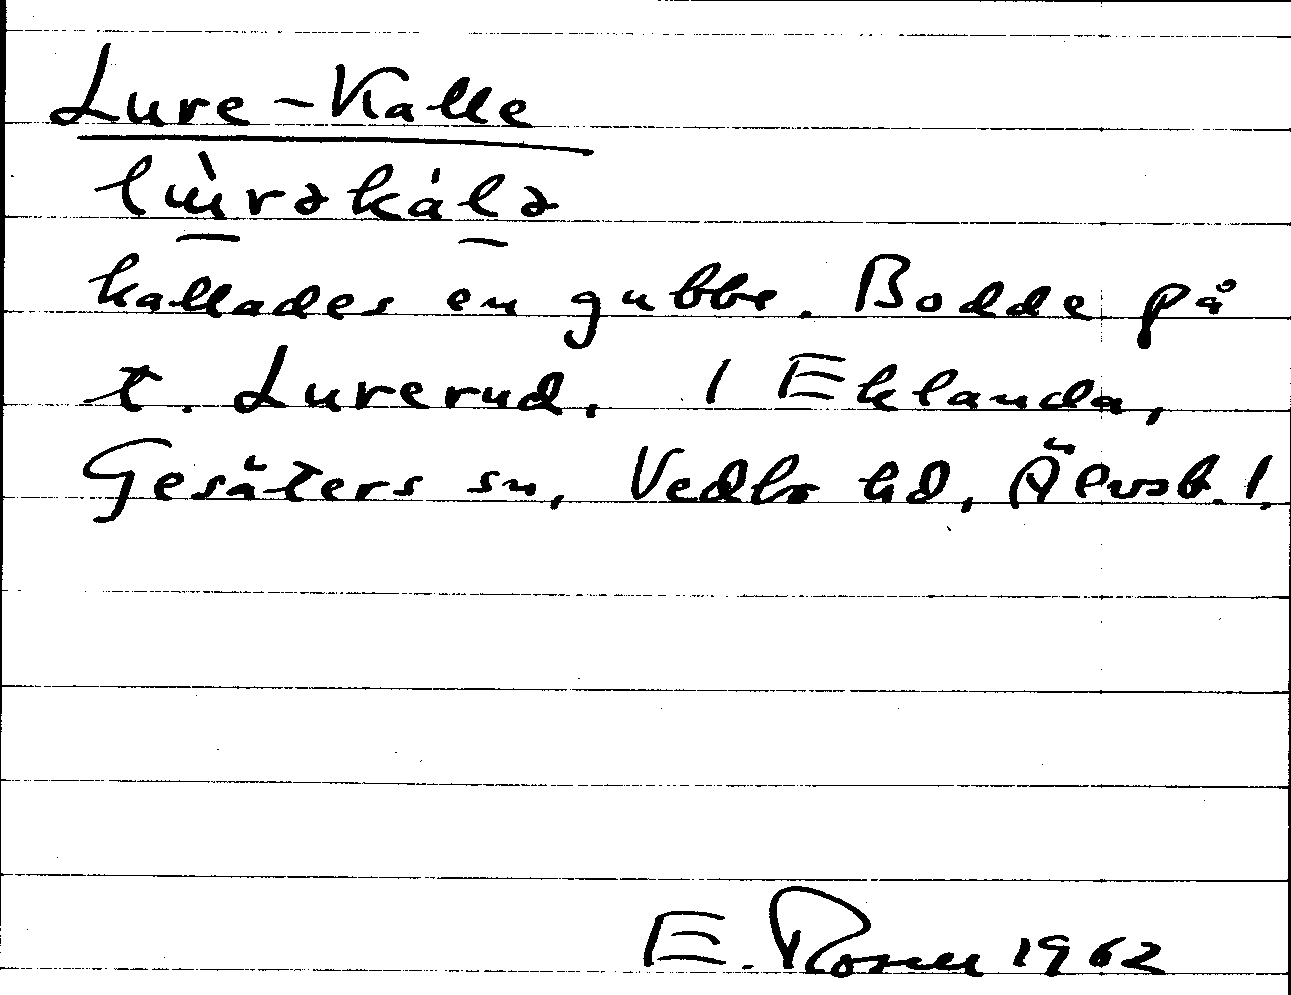 Lure-Kalle
lɯ̀rəkálə
kallades en gubbe. Bodde på
t. Lurerud. I Eklanda,
Gesäters sn, Vedbo hd, Älvsb. l.
E. Rosell 1962